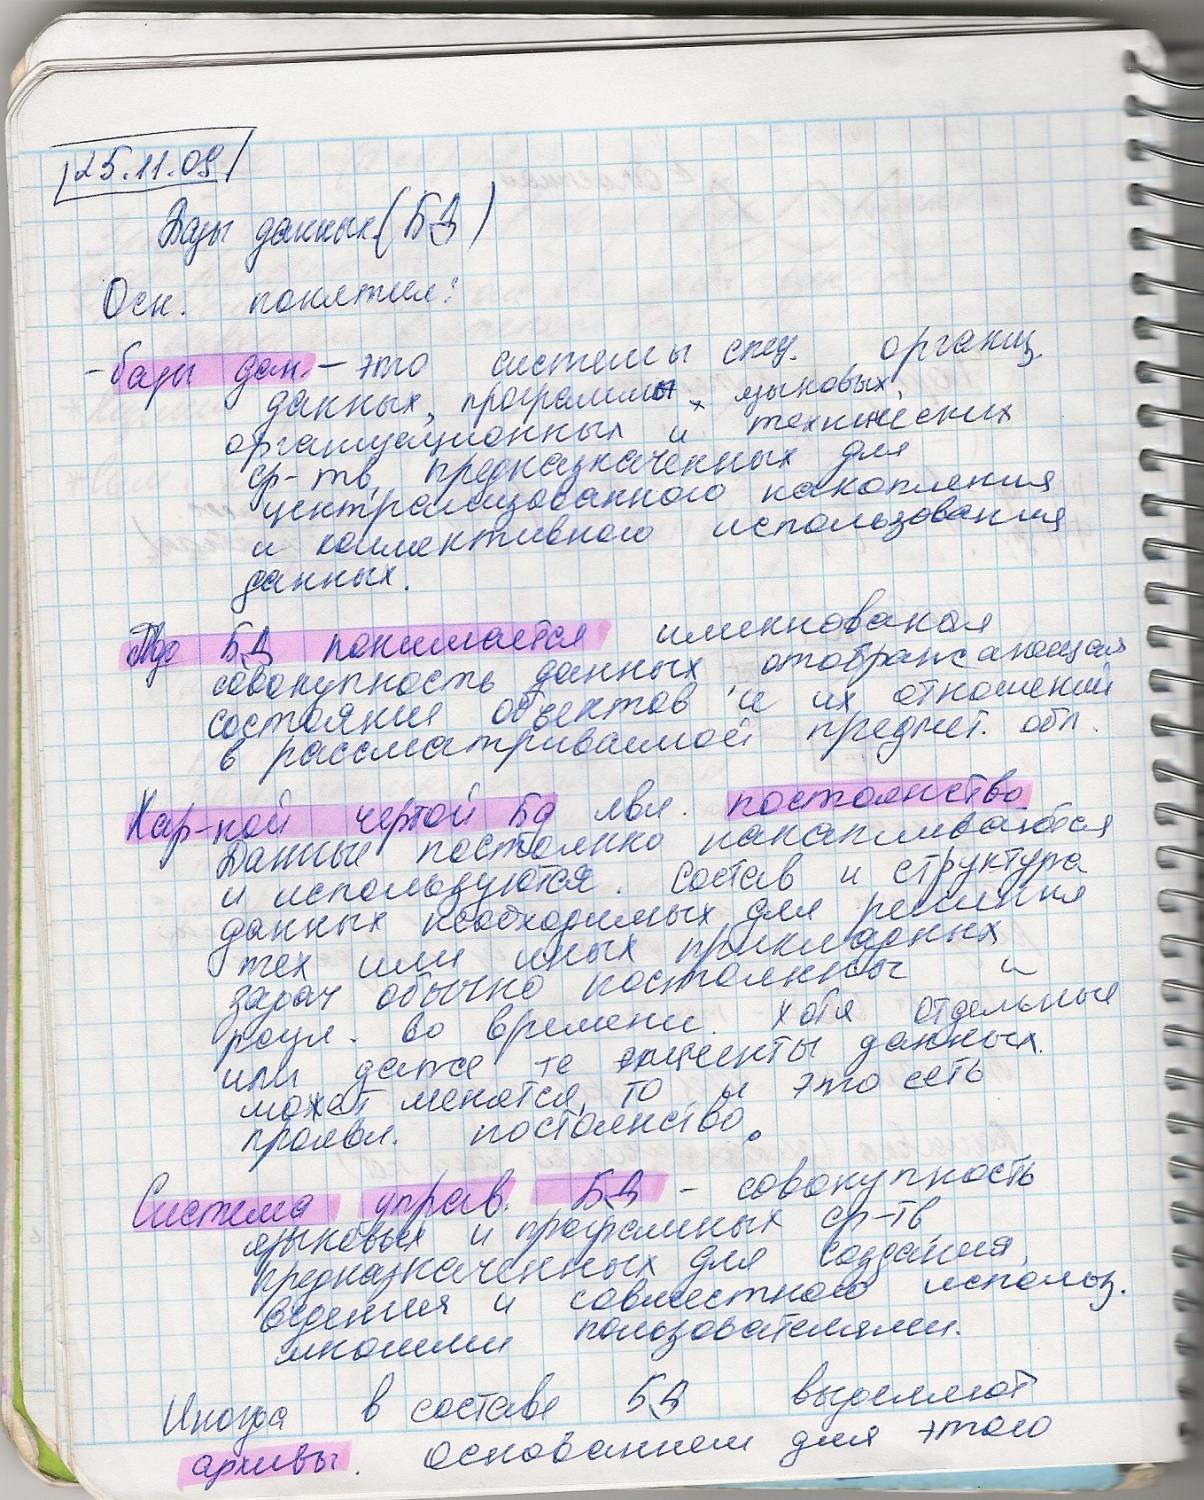 25.11.09
Базы данных (БД)
Осн. понятия:
- базы дан. - это системы спец. организ.
данных, программы, языковых,
организационных и технических
ср-тв, предназначенных для
централизованного накопления
и коллективного использования
данных.
Под БД понимается именнованая
совокупность данных отображающая
состояние объектов и их отношений
в рассматриваемой предмет. обл.
Хар-ной чертой БД явл. постоянство.
Данные постоянно накапливаются
и используются. Состав и структура
данных необходимых для решения
тех или иных прикладных
задач обычно постоянны и
во времени. Хотя отдельные
или даже те элементы данных
может менятся, то и это есть
проявл. постоянство.
Система управ. БД - совокупность
языковых и програмных ср-тв
предназначенных для создания,
ведения и совместного использ.
многими пользователями.
Иногда в составе БД выделяют
архивы. Основанием для этого